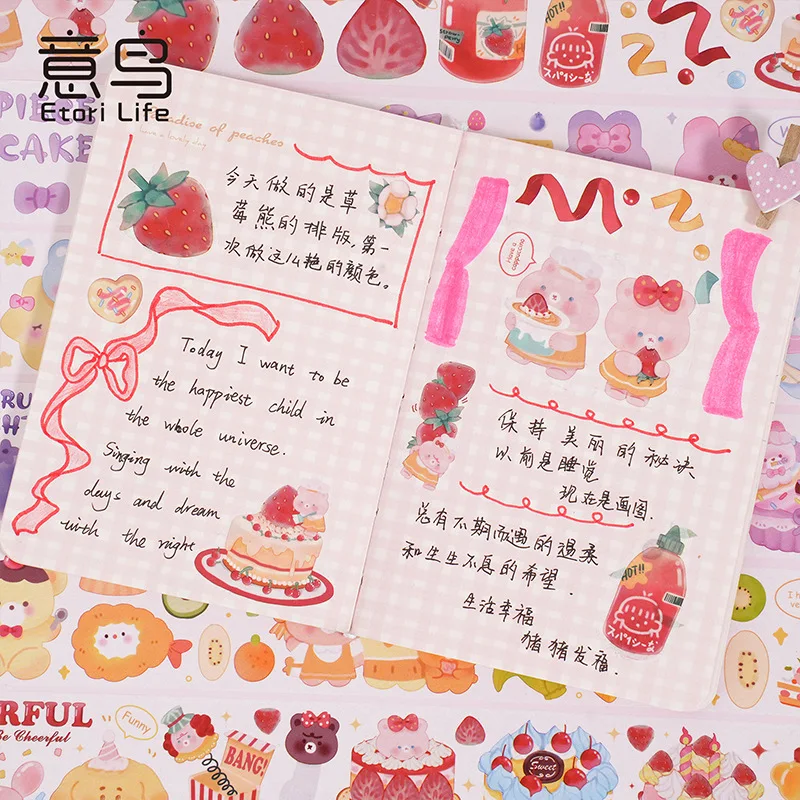 意鸟
Etori Life
PIECE
CAKE
HOT!!
スパイシーな
Paradise of peaches
have a lovely day
今天做的是草
莓熊的排版,第一
次做这么艳的颜色。
Today I want to be
the happiest child in
the whole universe.
Singing with the
days and dream
with the right
Have a
cappuccino
保持美丽的秘诀
以前是睡觉
现在是画图.
总有不期而遇的温柔
和生生不息的希望.
生活幸福
猪猪发福.
HOT!!
スパイシーな
RFUL
Be Cheerful
Funny
BANG!
Sweet